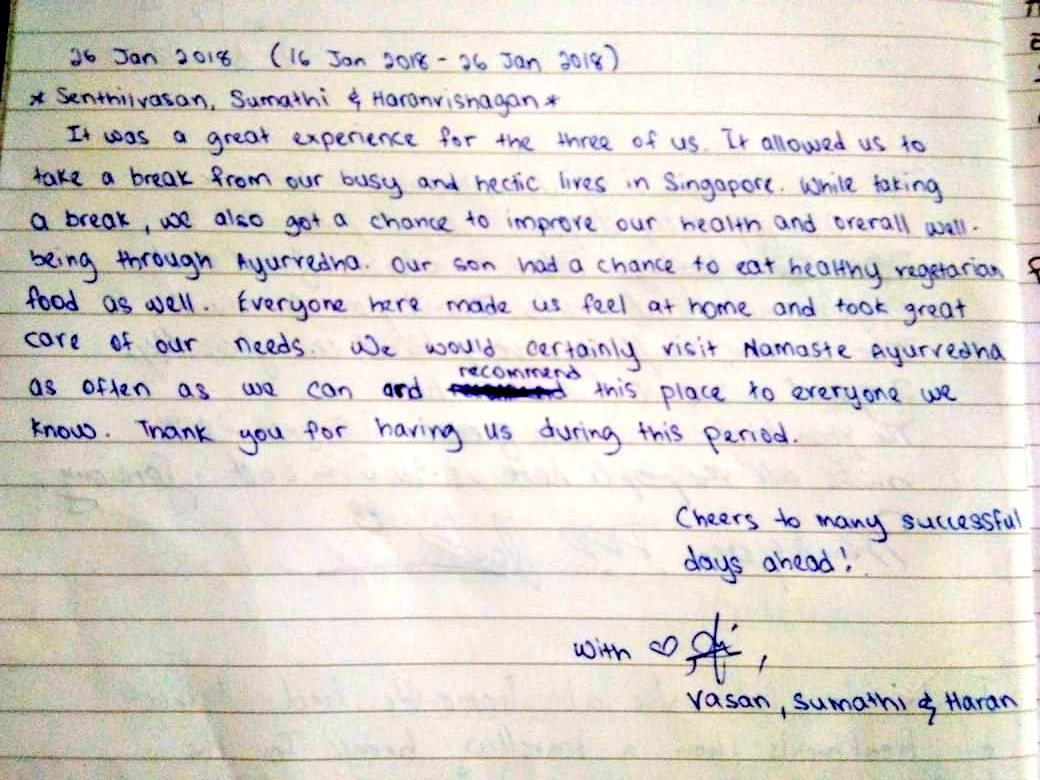 26 Jan 2018 (16 Jan 2018 - 26 Jan 2018)
* Senthilvasan, Sumathi & Haranvishagan *
It was a great experience for the three of us. It allowed us to
take a break from our busy and hectic lives in Singapore. While taking
a break, we also got a chance to improve our health and overall well-
being through Ayurvedha. Our son had a chance to eat healthy vegetarian
food as well. Everyone here made us feel at home and took great
care of our needs. We would certainly visit Namaste Ayurvedha
recommend
as often as we can and this place to everyone we
know. Thank you for having us during this period.
Cheers to many successful
days ahead!
With ♡ ,
Vasan, Sumathi & Haran